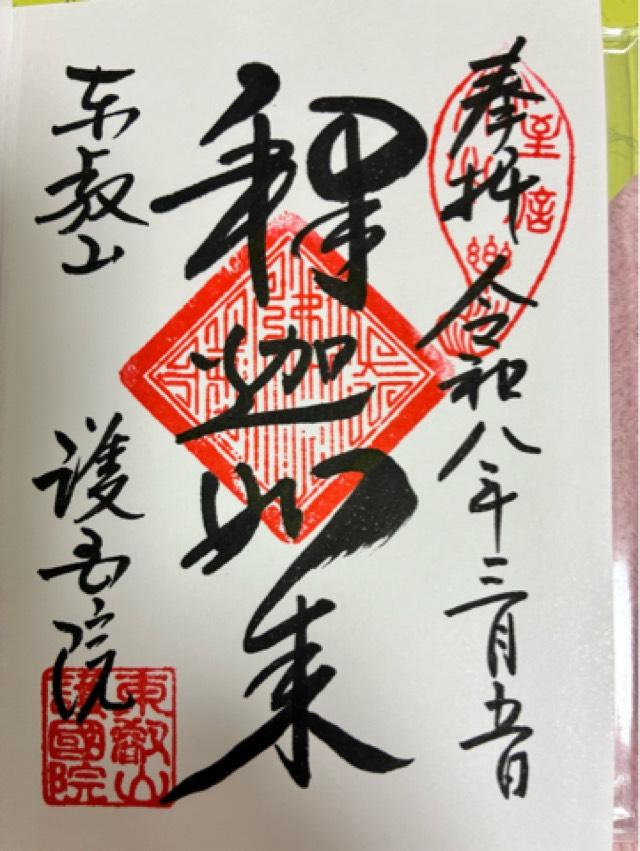 奉拝 令和八年三月五日
釋迦如来
东叡山 護国院
東叡山
護國院